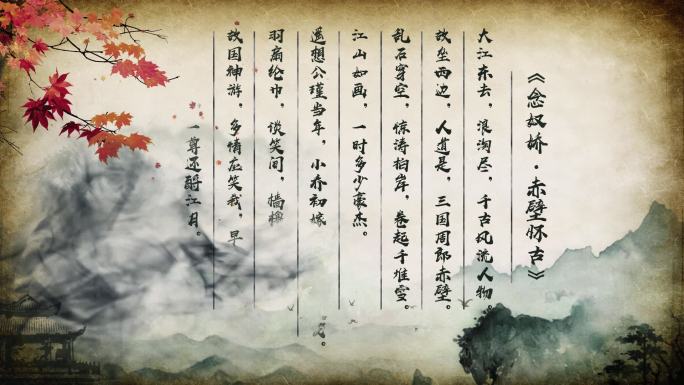 《念奴娇·赤壁怀古》
大江东去，浪淘尽，千古风流人物。
故垒西边，人道是，三国周郎赤壁。
乱石穿空，惊涛拍岸，卷起千堆雪。
江山如画，一时多少豪杰。
遥想公瑾当年，小乔初嫁。
羽扇纶巾，谈笑间，樯橹
故国神游，多情应笑我，早
一尊还酹江月。